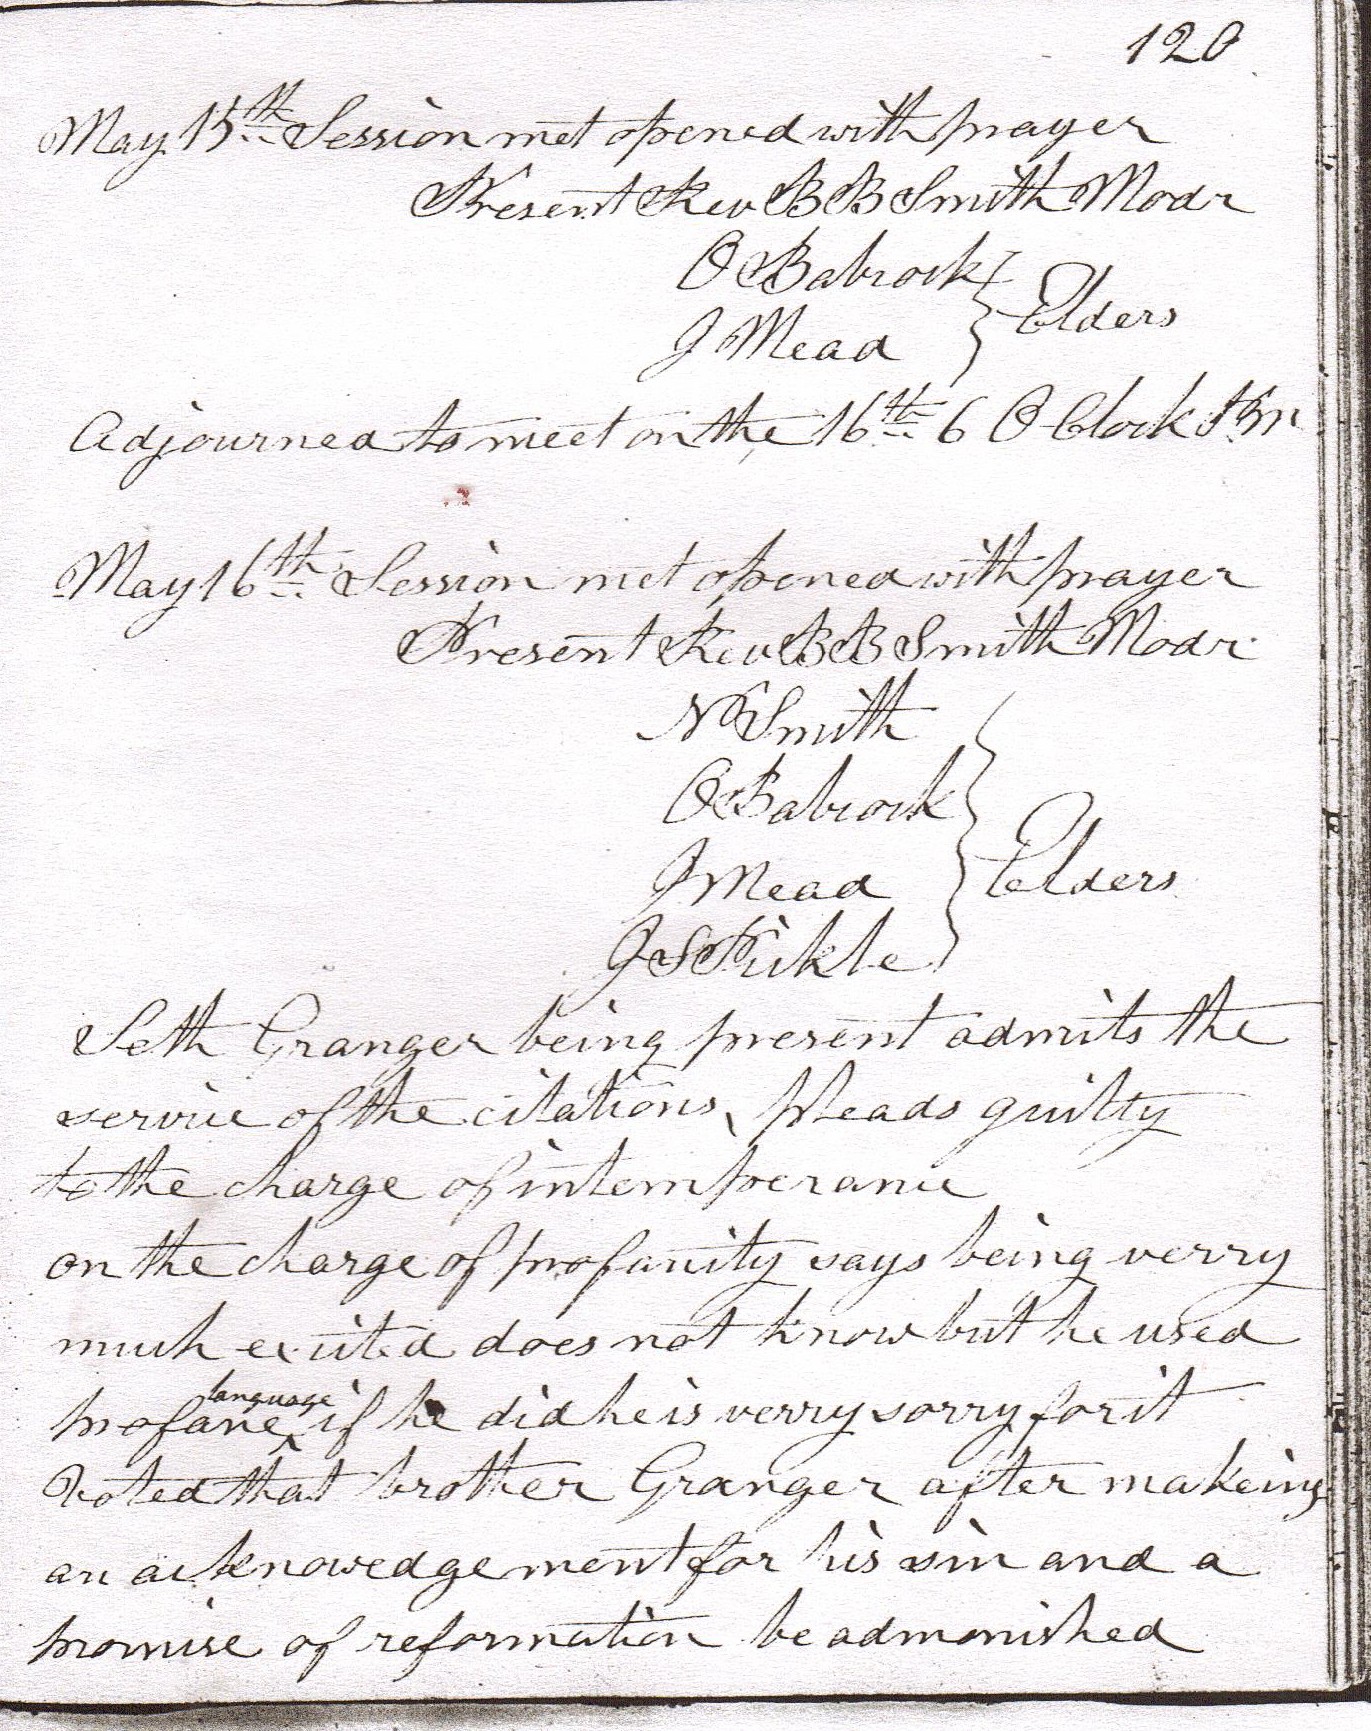 120
May 15th Session met opened with prayer
Present Rev B B Smith Modr
O Babcock
J Mead } Elders
Adjourned to meet on the 16th 6 O Clock P m
May 16th Session met opened with prayer
Present Rev B B Smith Modr
N Smith
O Babcock
J Mead } Elders
J S
Seth Granger being present admits the
service of the citations, Pleads guilty
to the charge of intemperance
on the charge of profanity says being verry
much excited does not know but he used
profane language if he did he is verry sorry for it
Voted that brother Granger after makeing
an acknowedgement for his sin and a
promise of reformation be admonished